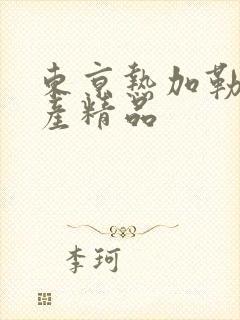 東京熱加勒
產精品
李珂